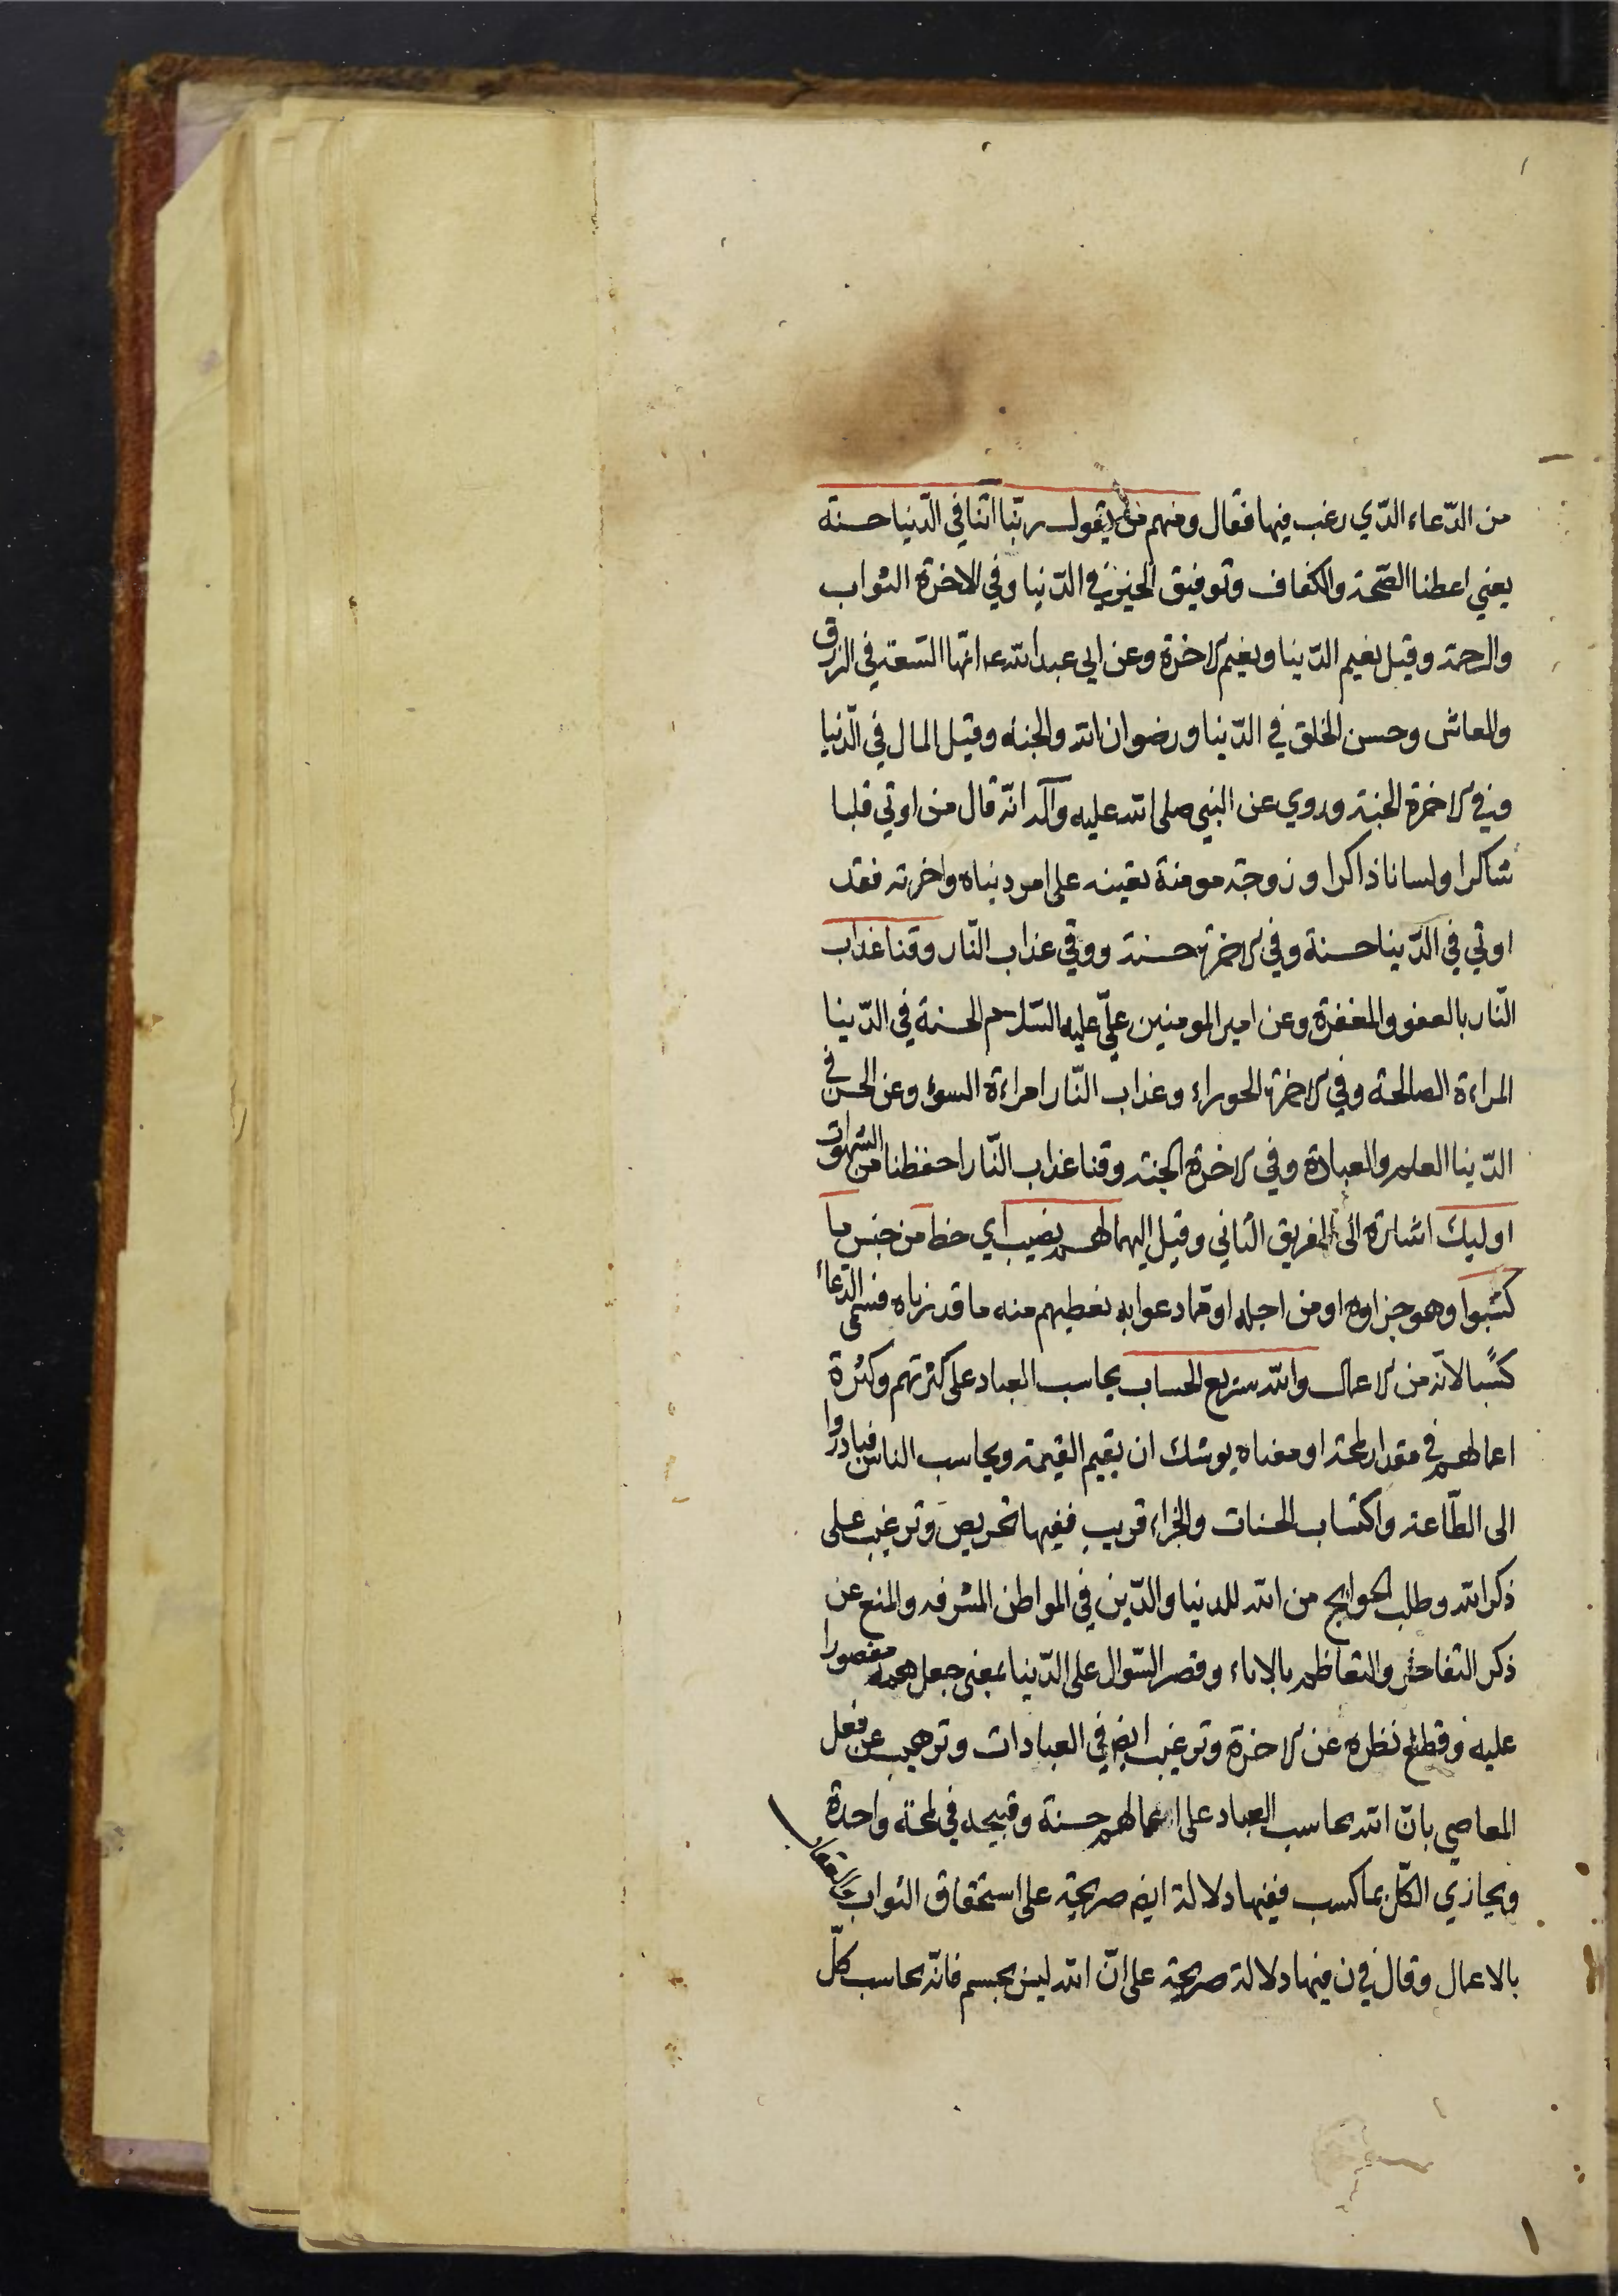 من الدّعاء الذّي رغب فيها فقال ومنهم من يقول ربّنا اتنا في الدّنيا حسنة
يعني اعطنا الصّحة والكفاف وتوفيق الخير في الدّنيا وفي الاخرة الثواب
والرحمة وقيل نعيم الدّنيا ونعيم الاخرة وعن ابي عبد الله ع انّها السّعة في الرزق
والمعاش وحسن الخلق في الدّنيا ورضوان الله والجنة وقيل المال في الدّنيا
وفي الاخرة الجنة وروي عن النبي صلى الله عليه وآله انّه قال من اوتي قلبا
شاكرا ولسانا ذاكرا وزوجة مومنة تعينه على امر دنياه واخرته فقد
اوتي في الدّنيا حسنة وفي الاخرة حسنة ووقي عذاب النّار وقنا عذاب
النّار بالعفو والمغفرة وعن امير المومنين عليّ عليه السّلام الحسنة في الدّنيا
المراءة الصالحة وفي الاخرة الحوراء وعذاب النّار امراءة السوء وعن الحسن في
الدّنيا العلم والعبادة وفي الاخرة الجنة وقنا عذاب النّار احفظنا من الشهوات
اوليك اشارة الى الفريق الثاني وقيل اليهما لهم نصيب اي حظ من جنس ما
كسبوا وهو جزاوه او من اجله او ممّا دعوا به نعطيهم منه ما قدرناه فسمّى الدّعاء
كسبًا لانّه من الاعمال والله سريع الحساب يحاسب العباد على كثرتهم وكثرة
اعمالهم في مقدار لمحة او معناه يوشك ان يقيم القيمة ويحاسب الناس فبادروا
الى الطّاعة واكتساب الحسنات والجزاء قريب ففيها تحريص وترغيب على
ذكر الله وطلب الحوائج من الله للدنيا والدّين في المواطن المشرفه والمنع عن
ذكر التفاخر والتعاظم بالاباء وقصر السّوال على الدّنيا بمعنى جعل همه مقصورا
عليه وقطع نظره عن الاخرة وترغيب ايض في العبادات وترهيب عن فعل
المعاصي بانّ الله يحاسب العباد على اعمالهم حسنة وقبيحه في لمحة واحدة
ويجازي الكلّ بما كسب ففيها دلالة ايض صريحة على استحقاق الثواب والعقاب
بالاعمال وقال في ن فيها دلالة صريحة على انّ الله ليس بجسم فانّه يحاسب كلّ